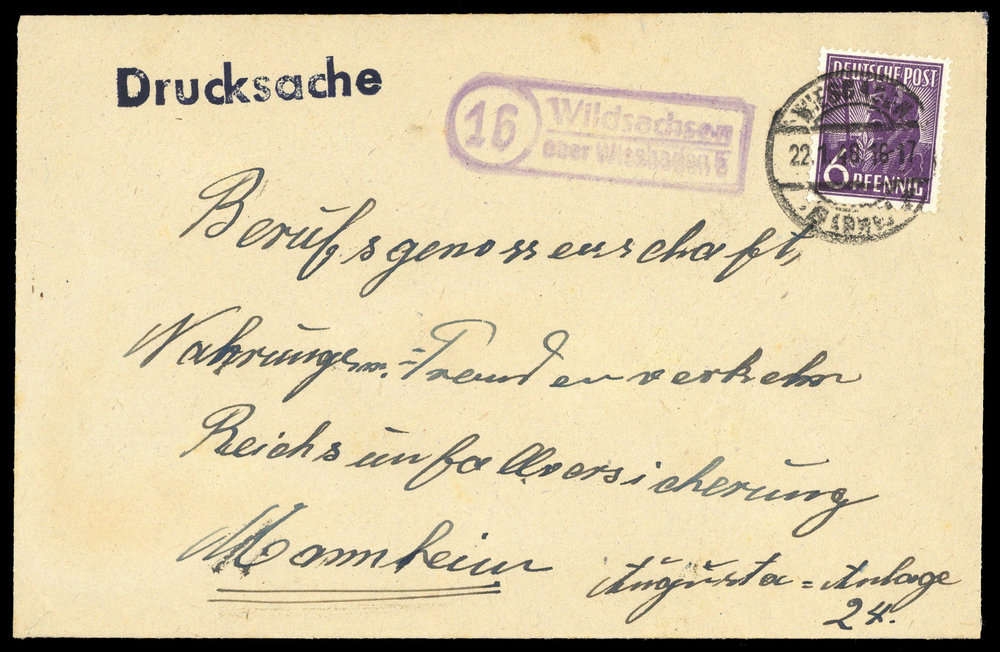 Drucksache
16
Wildsachsen
über Wiesbaden 5
DEUTSCHE POST
6 PFENNIG
22.1.48.16-17
Berufsgenossenschaft,
Nahrungs u. Fremdenverkehr
Reichsunfallversicherung
Mannheim
Augusta=Anlage
24.